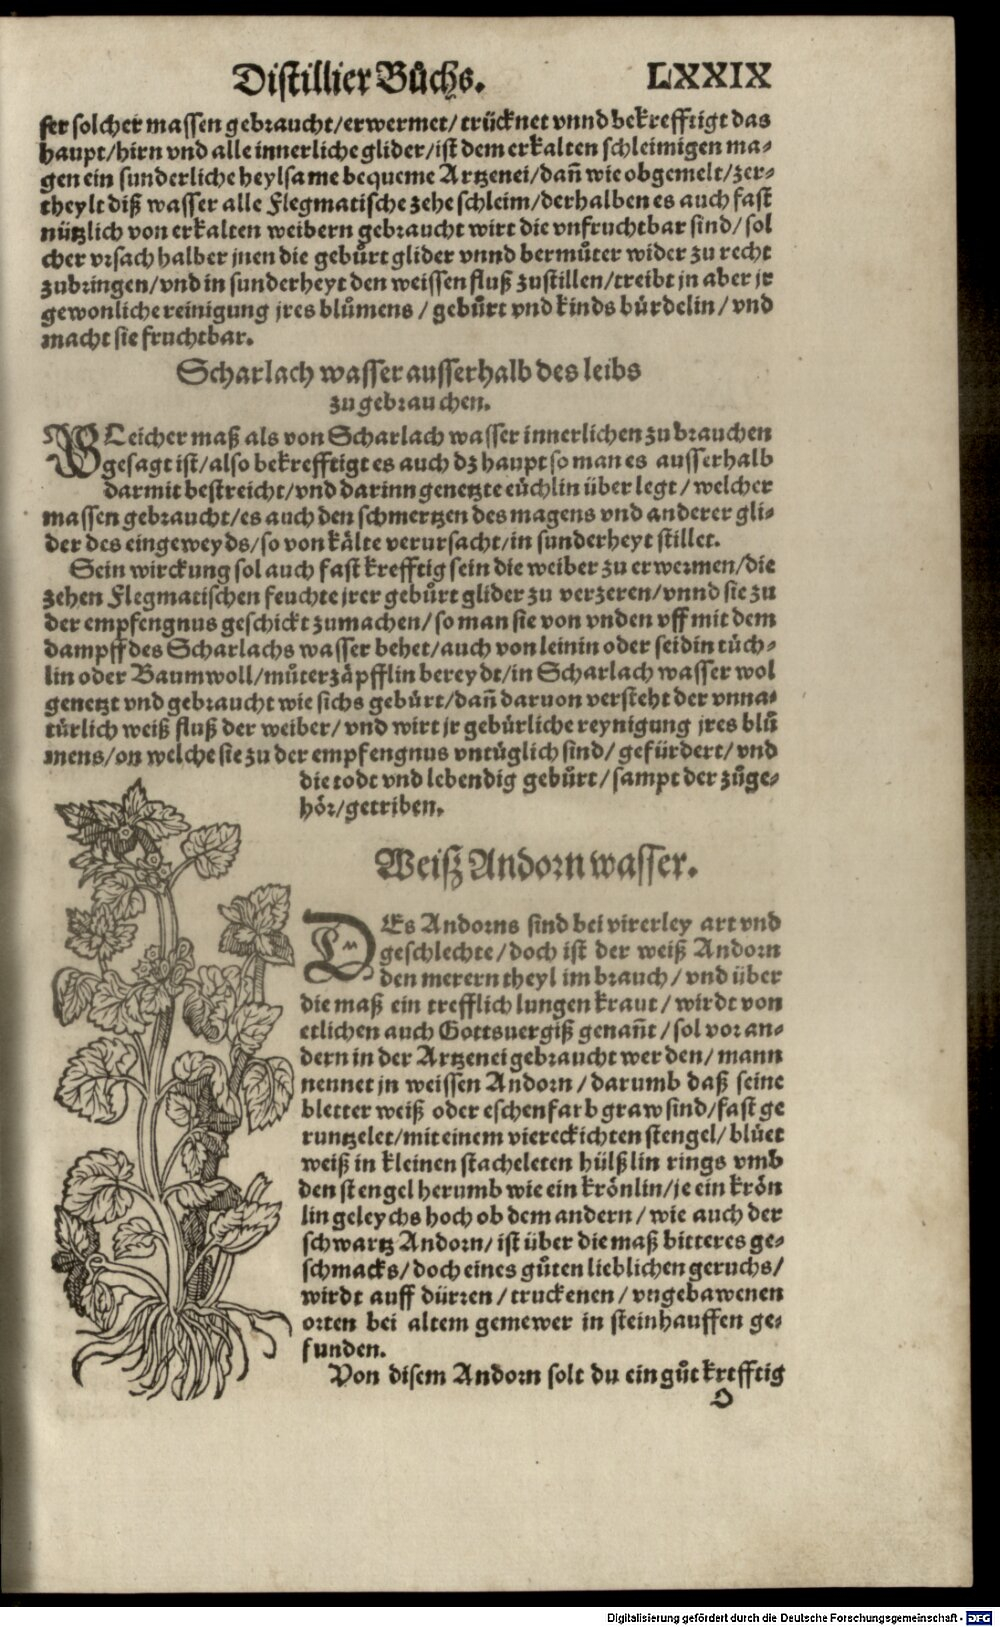 Distillier Bůchs. LXXIX
ser solcher massen gebraucht/erwermet/trücknet vnnd bekrefftigt das
haupt/hirn vnd alle innerliche glider/ist dem erkalten schleimigen ma-
gen ein sunderliche heylsame bequeme Artzenei/dañ wie obgemelt/zer-
theylt diß wasser alle Flegmatische zehe schleim/derhalben es auch fast
nützlich von erkalten weibern gebraucht wirt die vnfruchtbar sind/sol
cher vrsach halber jnen die gebůrt glider vnnd bermůter wider zu recht
zubringen/vnd in sunderheyt den weissen fluß zustillen/treibt jn aber jr
gewonliche reinigung jres blůmens / gebůrt vnd kinds bürdelin / vnd
macht sie fruchtbar.
Scharlach wasser ausserhalb des leibs
zu gebrauchen.
GLeicher maß als von Scharlach wasser innerlichen zu brauchen
gesagt ist/also bekrefftigt es auch dz haupt so man es ausserhalb
darmit bestreicht/vnd darinn genetzte tüchlin über legt / welcher
massen gebraucht/es auch den schmertzen des magens vnd anderer gli-
der des eingeweyds/so von kälte verursacht/in sunderheyt stillet.
Sein wirckung sol auch fast krefftig sein die weiber zu erwermen/die
zehen Flegmatischen feuchte jrer gebůrt glider zu verzeren/vnnd sie zu
der empfengnus geschickt zumachen/so man sie von vnden vff mit dem
dampff des Scharlachs wasser behet/auch von leinin oder seidin tüch-
lin oder Baumwoll/můterzäpfflin bereydt/in Scharlach wasser wol
genetzt vnd gebraucht wie sichs gebürt/dañ daruon versteht der vnna-
türlich weiß fluß der weiber/ vnd wirt jr gebürliche reynigung jres blů
mens/on welche sie zu der empfengnus vntüglich sind/ gefürdert/ vnd
die todt vnd lebendig gebůrt/ sampt der zůge-
hör/getriben.
Weiß Andorn wasser.
DEs Andorns sind bei vierley art vnd
geschlechte/doch ist der weiß Andorn
den merern theyl im brauch/ vnd über
die maß ein trefflich lungen kraut / wirdt von
etlichen auch Gottsuergiß genañt / sol vor an-
dern in der Artzenei gebraucht werden/ mann
nennet jn weissen Andorn / darumb daß seine
bletter weiß oder eschenfarb graw sind/fast ge
runtzelet/mit einem viereckichten stengel/ blüet
weiß in kleinen stacheleten hülßlin rings vmb
den stengel herumb wie ein krönlin/je ein krön
lin geleychs hoch ob dem andern / wie auch der
schwartz Andorn/ ist über die maß bitteres ge-
schmacks/ doch eines gůten lieblichen geruchs/
wirdt auff dürren / truckenen / vngebawenen
orten bei altem gemewer in steinhauffen ge-
funden.
Von disem Andorn solt du ein gůt krefftig
O
Digitalisierung gefördert durch die Deutsche Forschungsgemeinschaft - DFG